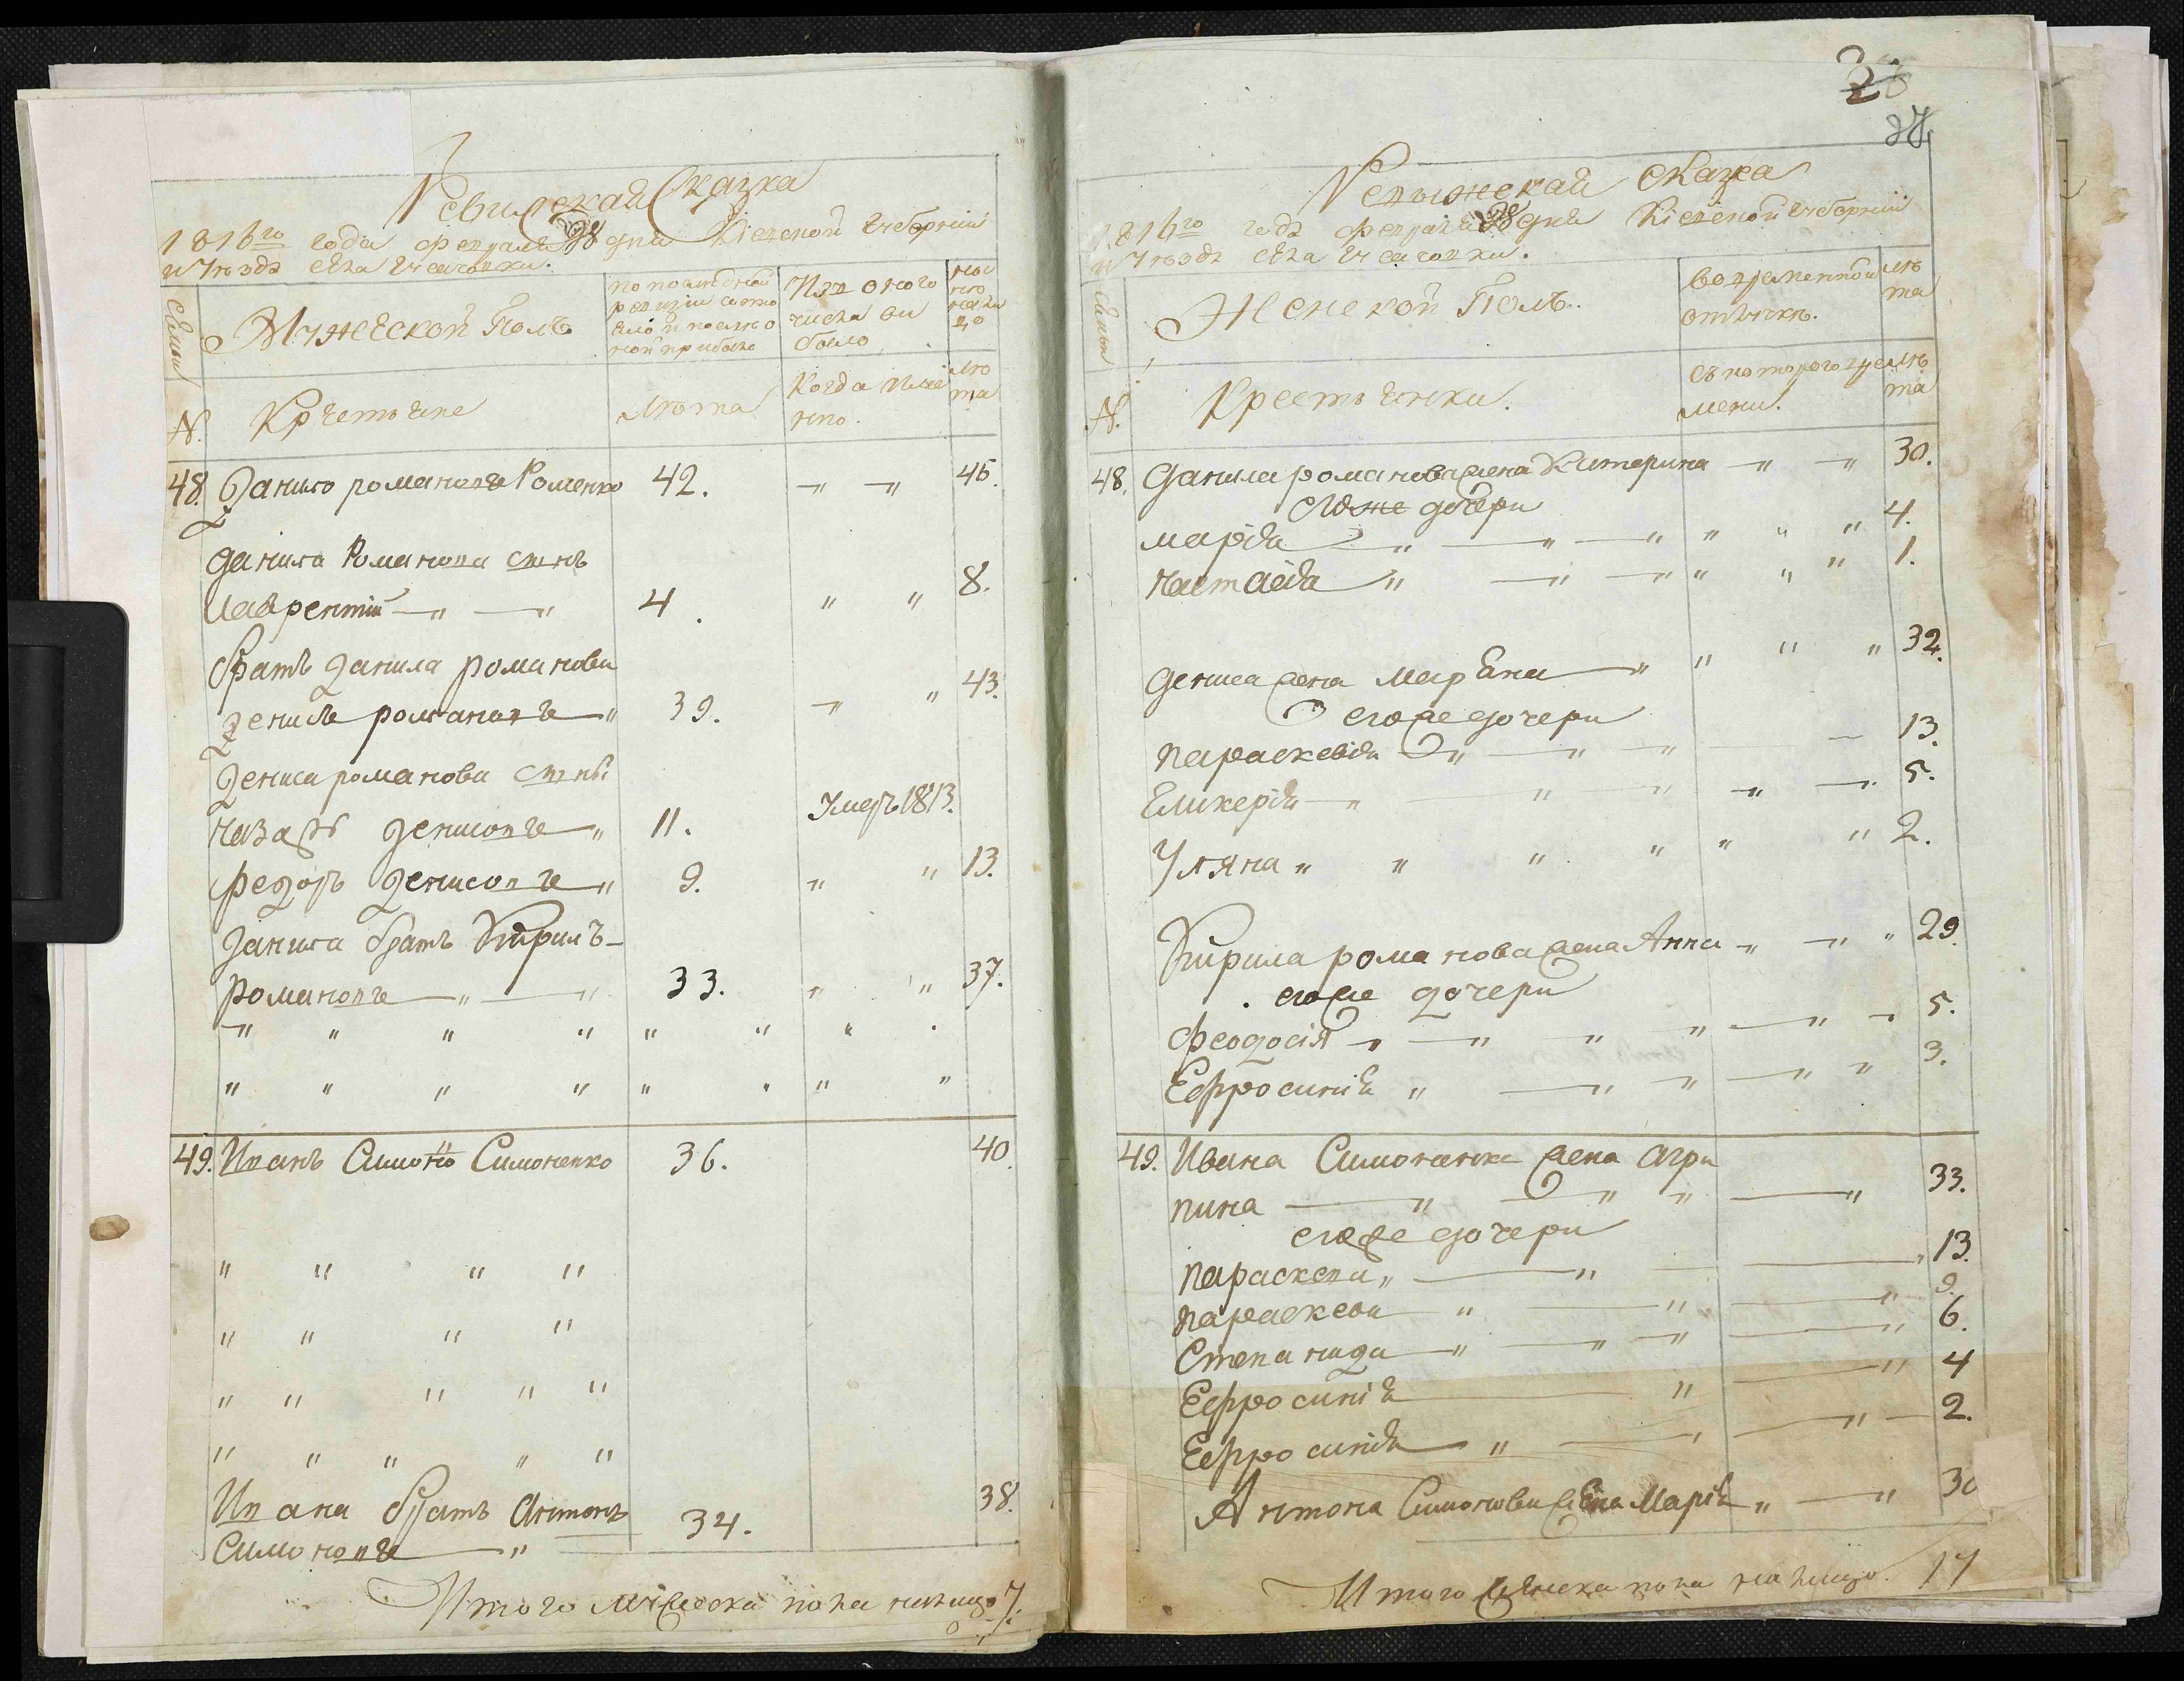 Ревижская Сказка
1816го года февраля 28 дня Кіевской Губерніи
и Уезда села Гусачовки.
Семьи
Мужеской Полъ
по последной ревизіи состояло и после оной прибыло
Изъ оного числа выбыло
ныне налицо
N.
Крестьяне
Лета
Когда именно.
Лета
48. Данило романовъ Роменко 42. 46.
Данила Романова сынъ
Лаврентий 4. 8.
братъ Данила романова
Денисъ романовъ 39. 43.
Дениса романова сыны
Назаръ Денисовъ 11. Умеръ 1813.
Федоръ Денисовъ 9. 13.
Данила братъ Кирилъ
Романовъ 33. 37.
49. Иванъ Симоно Симоненко 36. 40.
Ивана братъ Антонъ 38.
Симоновъ 34.
Итого мужеска пола налицо 7.
27
Ревижская сказка
1816го года февраля 28 дня Кіевской Губерніи
и Уезда села Гусачовки.
Семьи
Женской Полъ.
во временной отлучке.
лета
N.
Крестьянки.
съ которого времени.
лета
48. Данила романова жена Катерина 30.
его же дочери
Марія 4.
Настасія 1.
Дениса жена Маряна 32.
его же дочери
Параскевія 13.
Гликерія 5.
Уляна 2.
Кирила романова жена Анна 29.
его же дочери
Феодосія 5.
Ефросинія 3.
49. Ивана Симоненка жена Агри
пина 33.
его же дочери
Параскева 13.
Параскева 9.
Степанида 6.
Ефросинія 4
Ефросинія 2.
Антона Симонова жена Марія 30
Итого женска пола налицо. 17